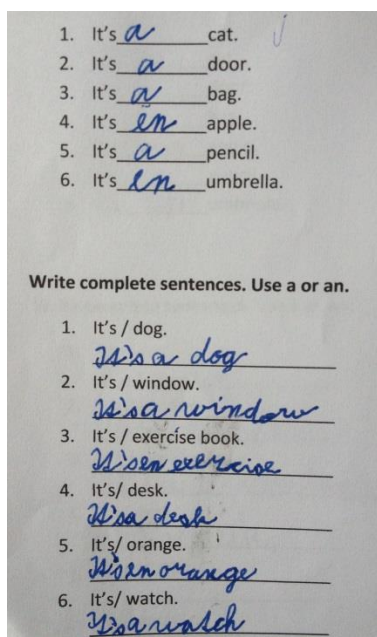 1. It's a cat.
2. It's a door.
3. It's a bag.
4. It's en apple.
5. It's a pencil.
6. It's en umbrella.
Write complete sentences. Use a or an.
1. It's / dog.
It's a dog
2. It's / window.
It's a window
3. It's / exercise book.
It's en exercise
4. It's/ desk.
It's a desk
5. It's/ orange.
It's en orange
6. It's/ watch.
It's a watch